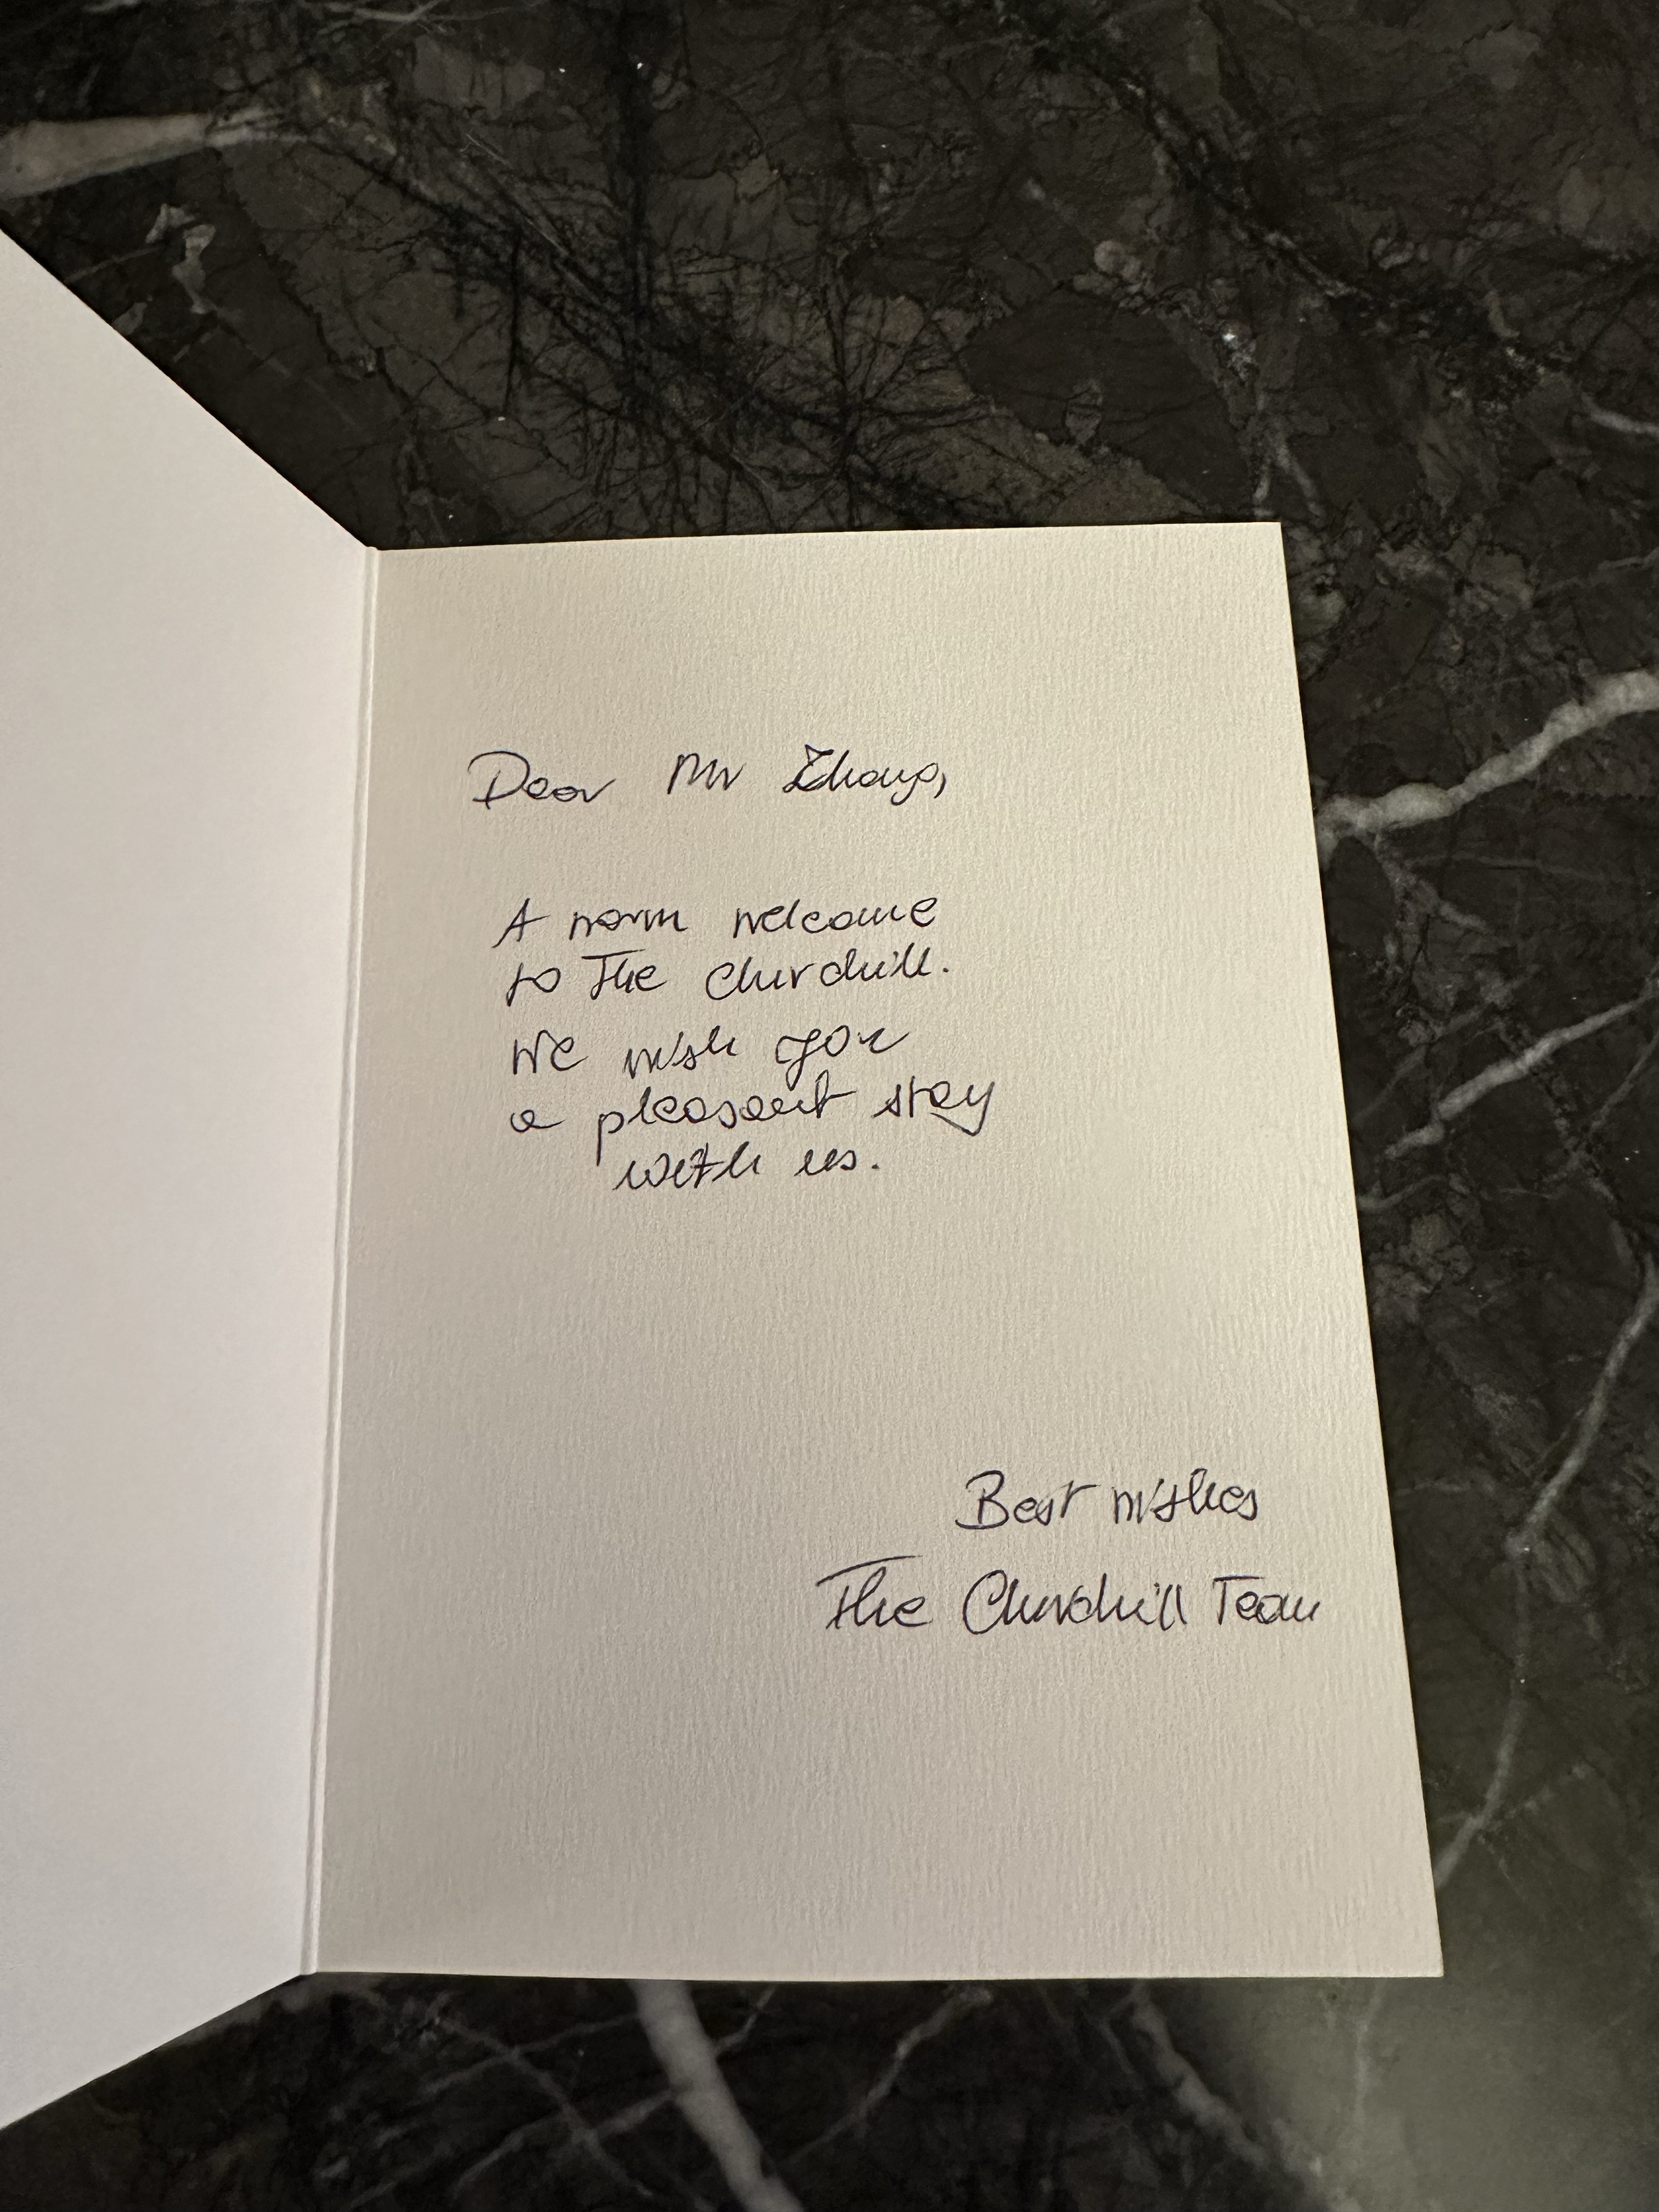 Dear Mr Zhang,
A warm welcome
to The Churchill.
We wish you
a pleasant stay
with us.
Best wishes
The Churchill Team